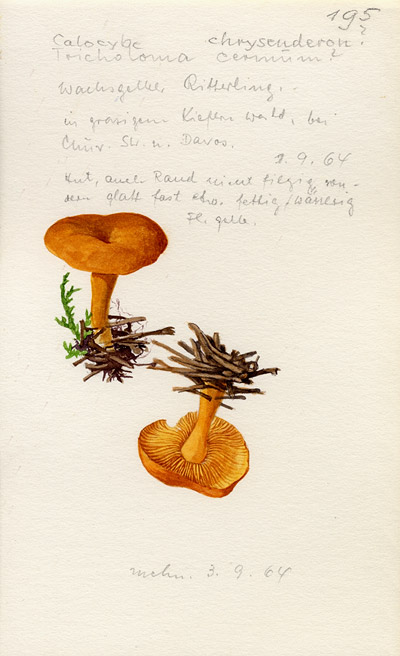 195
?
Calocybe chrysenderon?
Tricholoma cerinum?
Wachsgelber Ritterling.
in grasigem Kiefern wald, bei
Chur. St. n. Davos.
2. 9. 64
Hut, auch Rand nicht filzig, son-
dern glatt fast etw. fettig/wässerig
Fl. gelb.
3. 9. 64